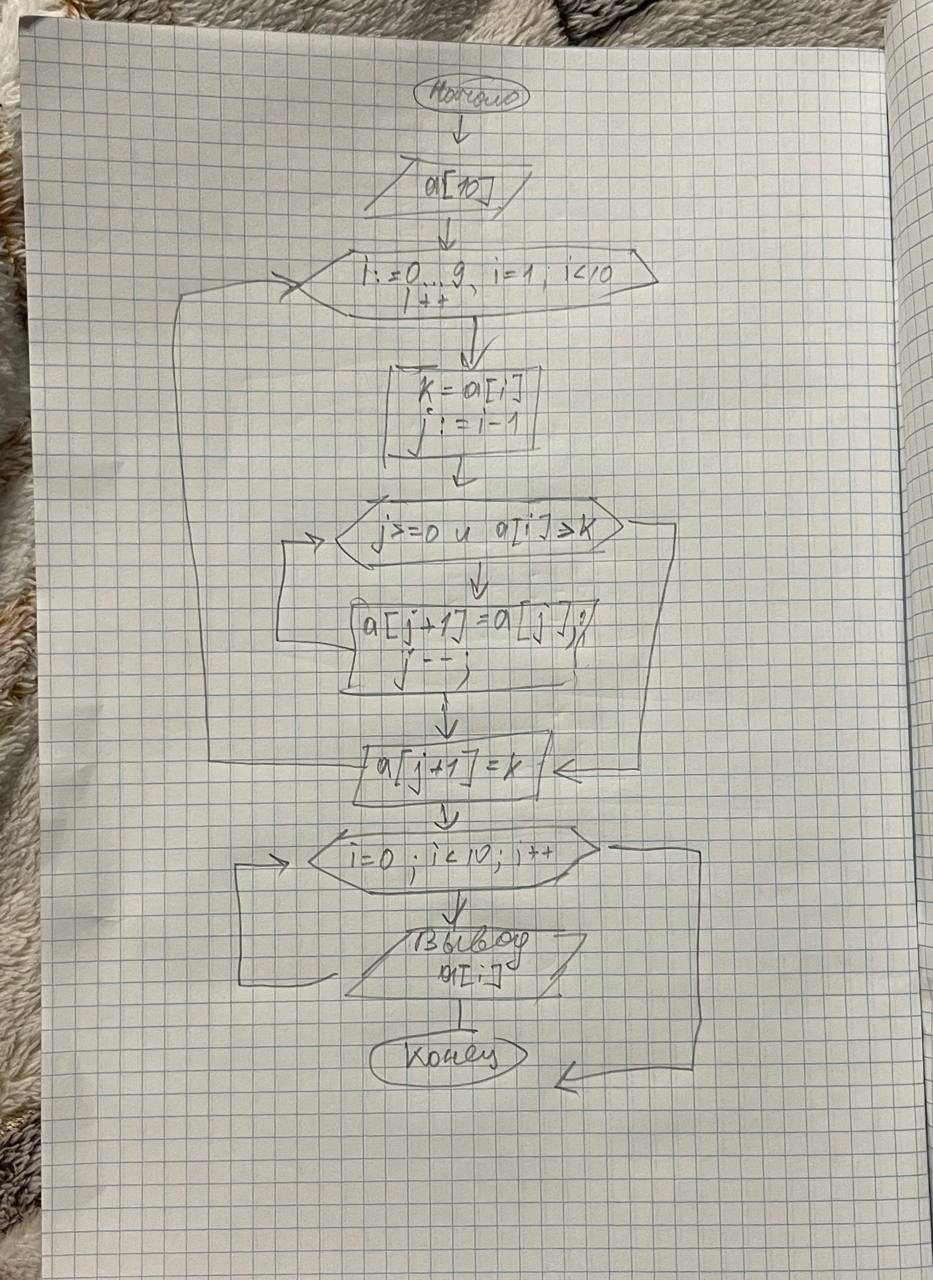 Начало
a[10]
i:=0...9, i=1; i<10
i++
k=a[i]
j:=i-1
j>=0 и a[j]>k
a[j+1]=a[j];
j--;
a[j+1]=k
i=0; i<10; i++
Вывод
a[i]
Конец